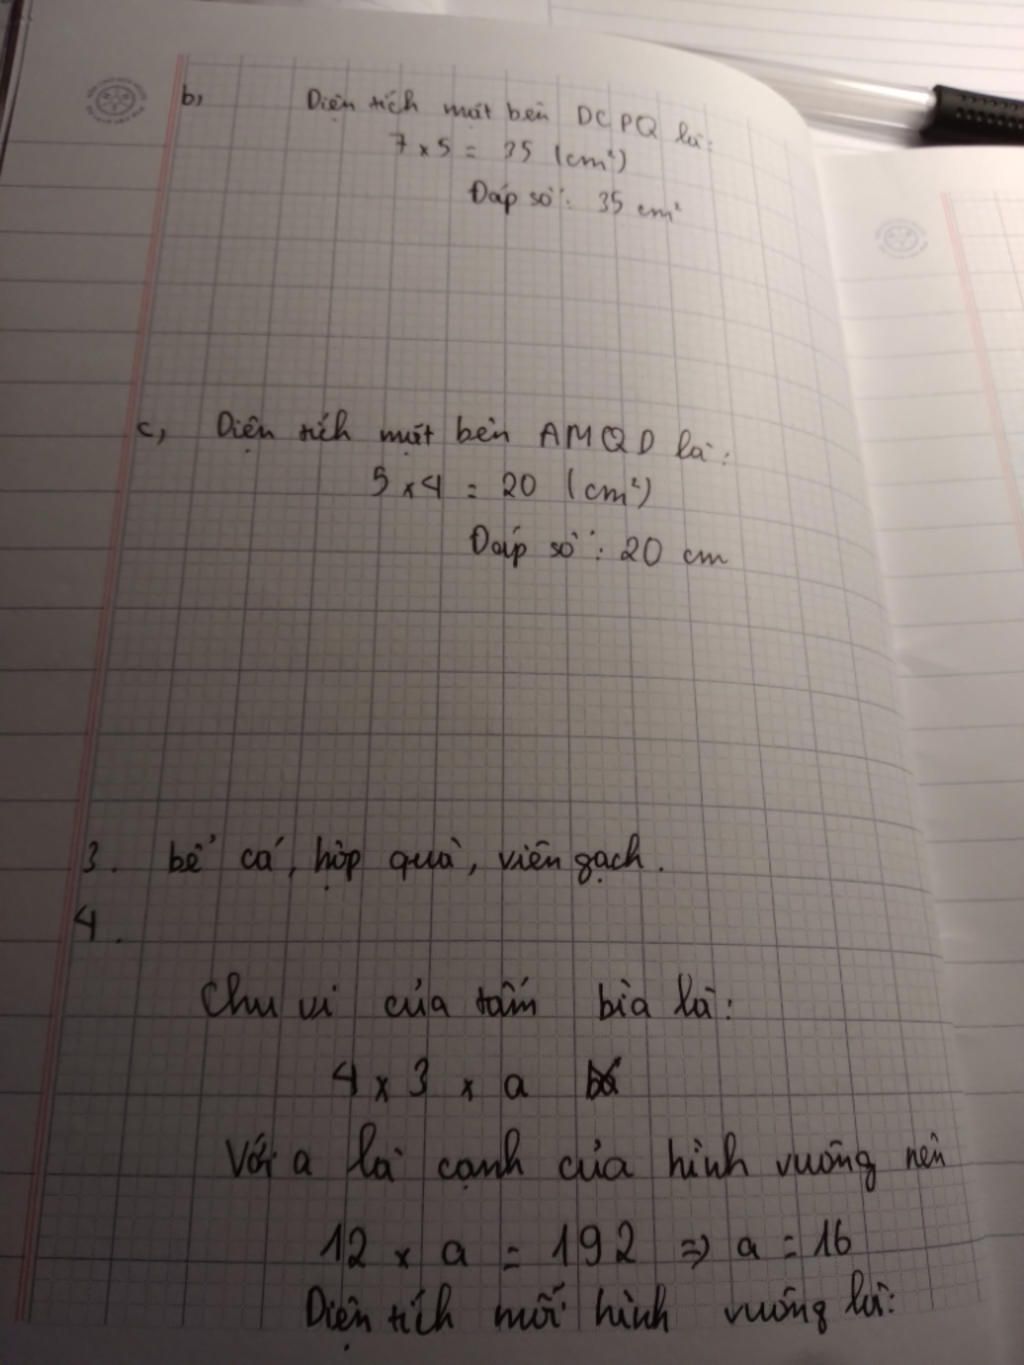 b, Diện tích mặt bên DCPQ là:
7 x 5 = 35 (cm²)
Đáp số: 35 cm²
c, Diện tích mặt bên AMQD là:
5 x 4 = 20 (cm²)
Đáp số: 20 cm
3. bể cá, hộp quà, viên gạch.
4.
Chu vi của tấm bìa là:
4 x 3 x a
Với a là cạnh của hình vuông nên
12 x a = 192 => a = 16
Diện tích mỗi hình vuông là: